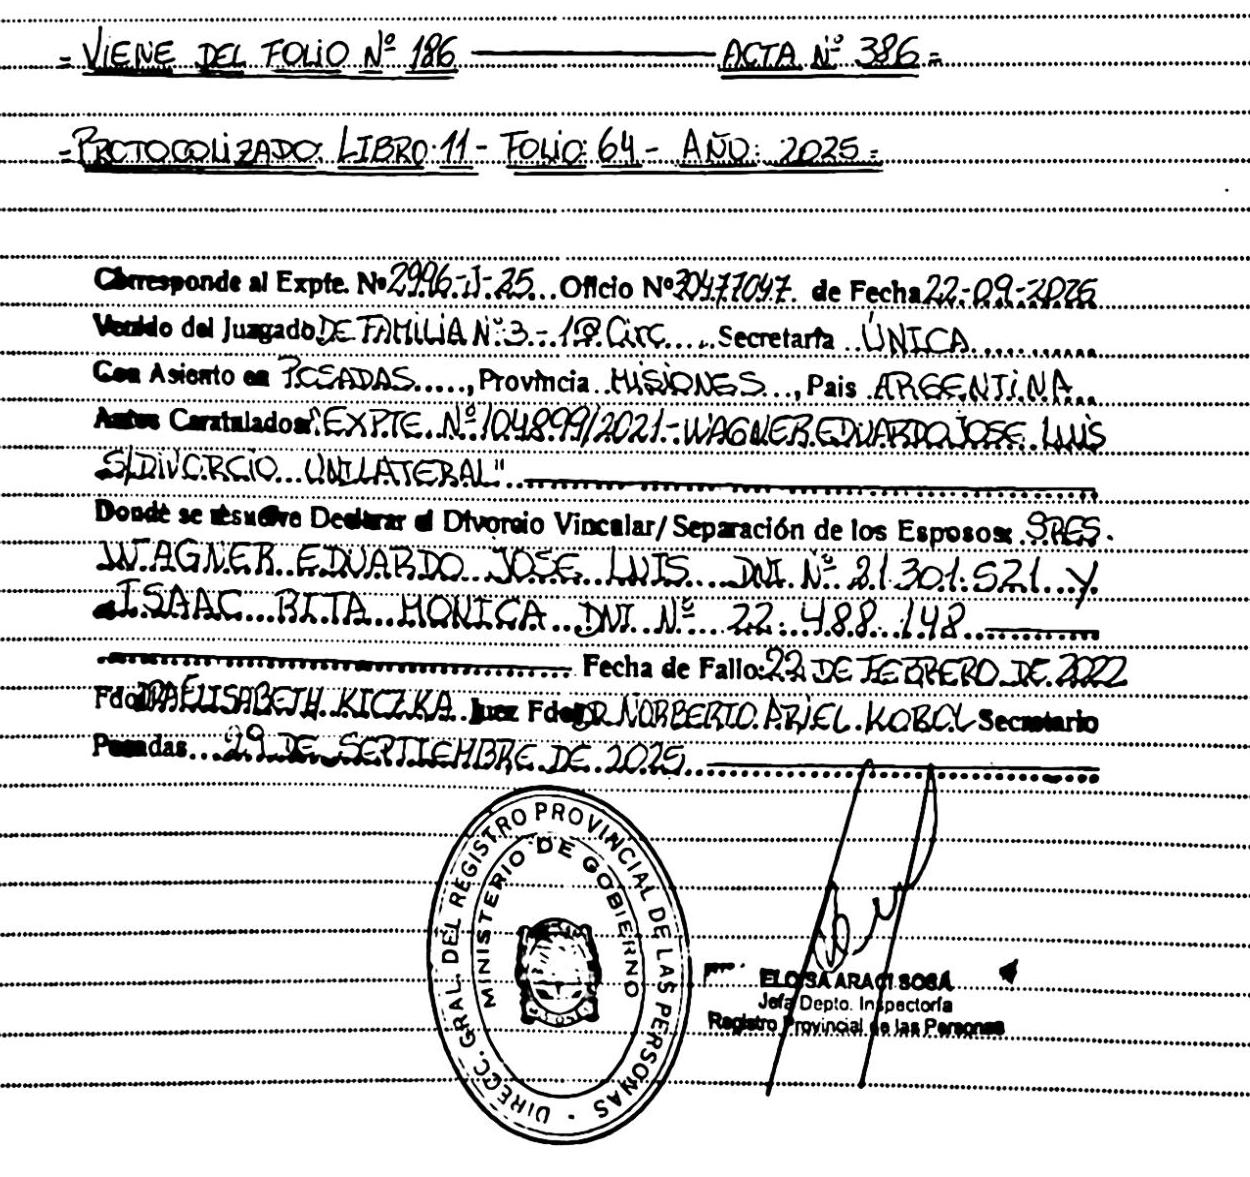 = VIENE DEL FOLIO Nº 186 ACTA Nº 386 =
= PROTOCOLIZADO: LIBRO: 11 - FOLIO: 64 - AÑO: 2025 =
Corresponde al Expte. Nº 2996-J-25... Oficio Nº 30477047. de Fecha 22-09-2025
Venido del Juzgado DE FAMILIA Nº 3 - 1ª Circ..... Secretaría ..ÚNICA..........
Con Asiento en POSADAS....., Provincia MISIONES..., Pais ARGENTINA...
Autos Caratulados "EXPTE. Nº 104899/2021 - WAGNER EDUARDO JOSE LUIS
S/DIVORCIO UNILATERAL"
Donde se resuelve Declarar el Divorcio Vincular/Separación de los Esposos: SRES.
WAGNER EDUARDO JOSE LUIS DNI Nº 21.301.521 Y
ISAAC RITA MONICA DNI Nº 22.488.148
Fecha de Fallo: 22 DE FEBRERO DE 2022
Fdo DRA ELISABETH KICZKA Juez Fdo DR NORBERTO ARIEL KOBOL Secretario
Posadas... 29 DE SEPTIEMBRE DE 2025
DIRECC. GRAL. DEL REGISTRO PROVINCIAL DE LAS PERSONAS -
MINISTERIO DE GOBIERNO
ELOISA ARACI SOSA
Jefa Depto. Inspectoría
Registro Provincial de las Personas